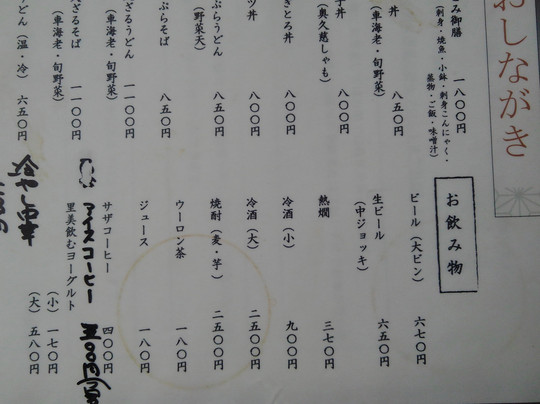 おしながき
み御膳 一八〇〇円
(刺身・焼魚・小鉢・刺身こんにゃく・
蒸物・ご飯・味噌汁)
丼
(車海老・旬野菜) 八五〇円
子丼
(奥久慈しゃも) 八〇〇円
きとろ丼 八〇〇円
ツ丼 八〇〇円
ぷらうどん
(野菜天) 八五〇円
ぷらそば 八五〇円
ざるうどん
(車海老・旬野菜) 一一〇〇円
ざるそば
(車海老・旬野菜) 一一〇〇円
どん(温・冷) 六五〇円
お飲み物
ビール(大ビン) 六七〇円
生ビール
(中ジョッキ) 六五〇円
熱燗 三七〇円
冷酒(小) 九〇〇円
冷酒(大) 二五〇〇円
焼酎(麦・芋) 二五〇〇円
ウーロン茶 一八〇円
ジュース 一八〇円
サザコーヒー 四〇〇円
アイスコーヒー
里美飲むヨーグルト
(小) 一七〇円
(大) 五八〇円